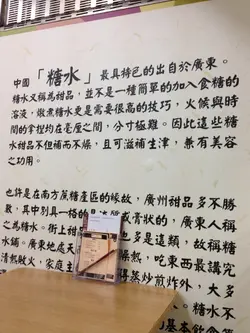 中國「糖水」最具特色的出自於廣東。
糖水又稱為甜品，並不是一種簡單的加入食糖的
溶液，燉煮糖水更是需要很高的技巧，火候與時
間的掌握均在毫厘之間，分寸極難。因此這些糖
水甜品不但補而不燥，且可滋補生津，兼有美容
之功用。
也許是在南方蔗糖產區的緣故，廣州甜品多不勝
數，其中別具一格的是
或膏狀的，廣東人稱
之為糖水。街上
也多是這類，故稱糖
水鋪。廣東地處
燥熱，吃東西最講究
清熱敗火，家庭主
得蒸炒煎炸外，大
多
糖水。
糖水不
基本飲食